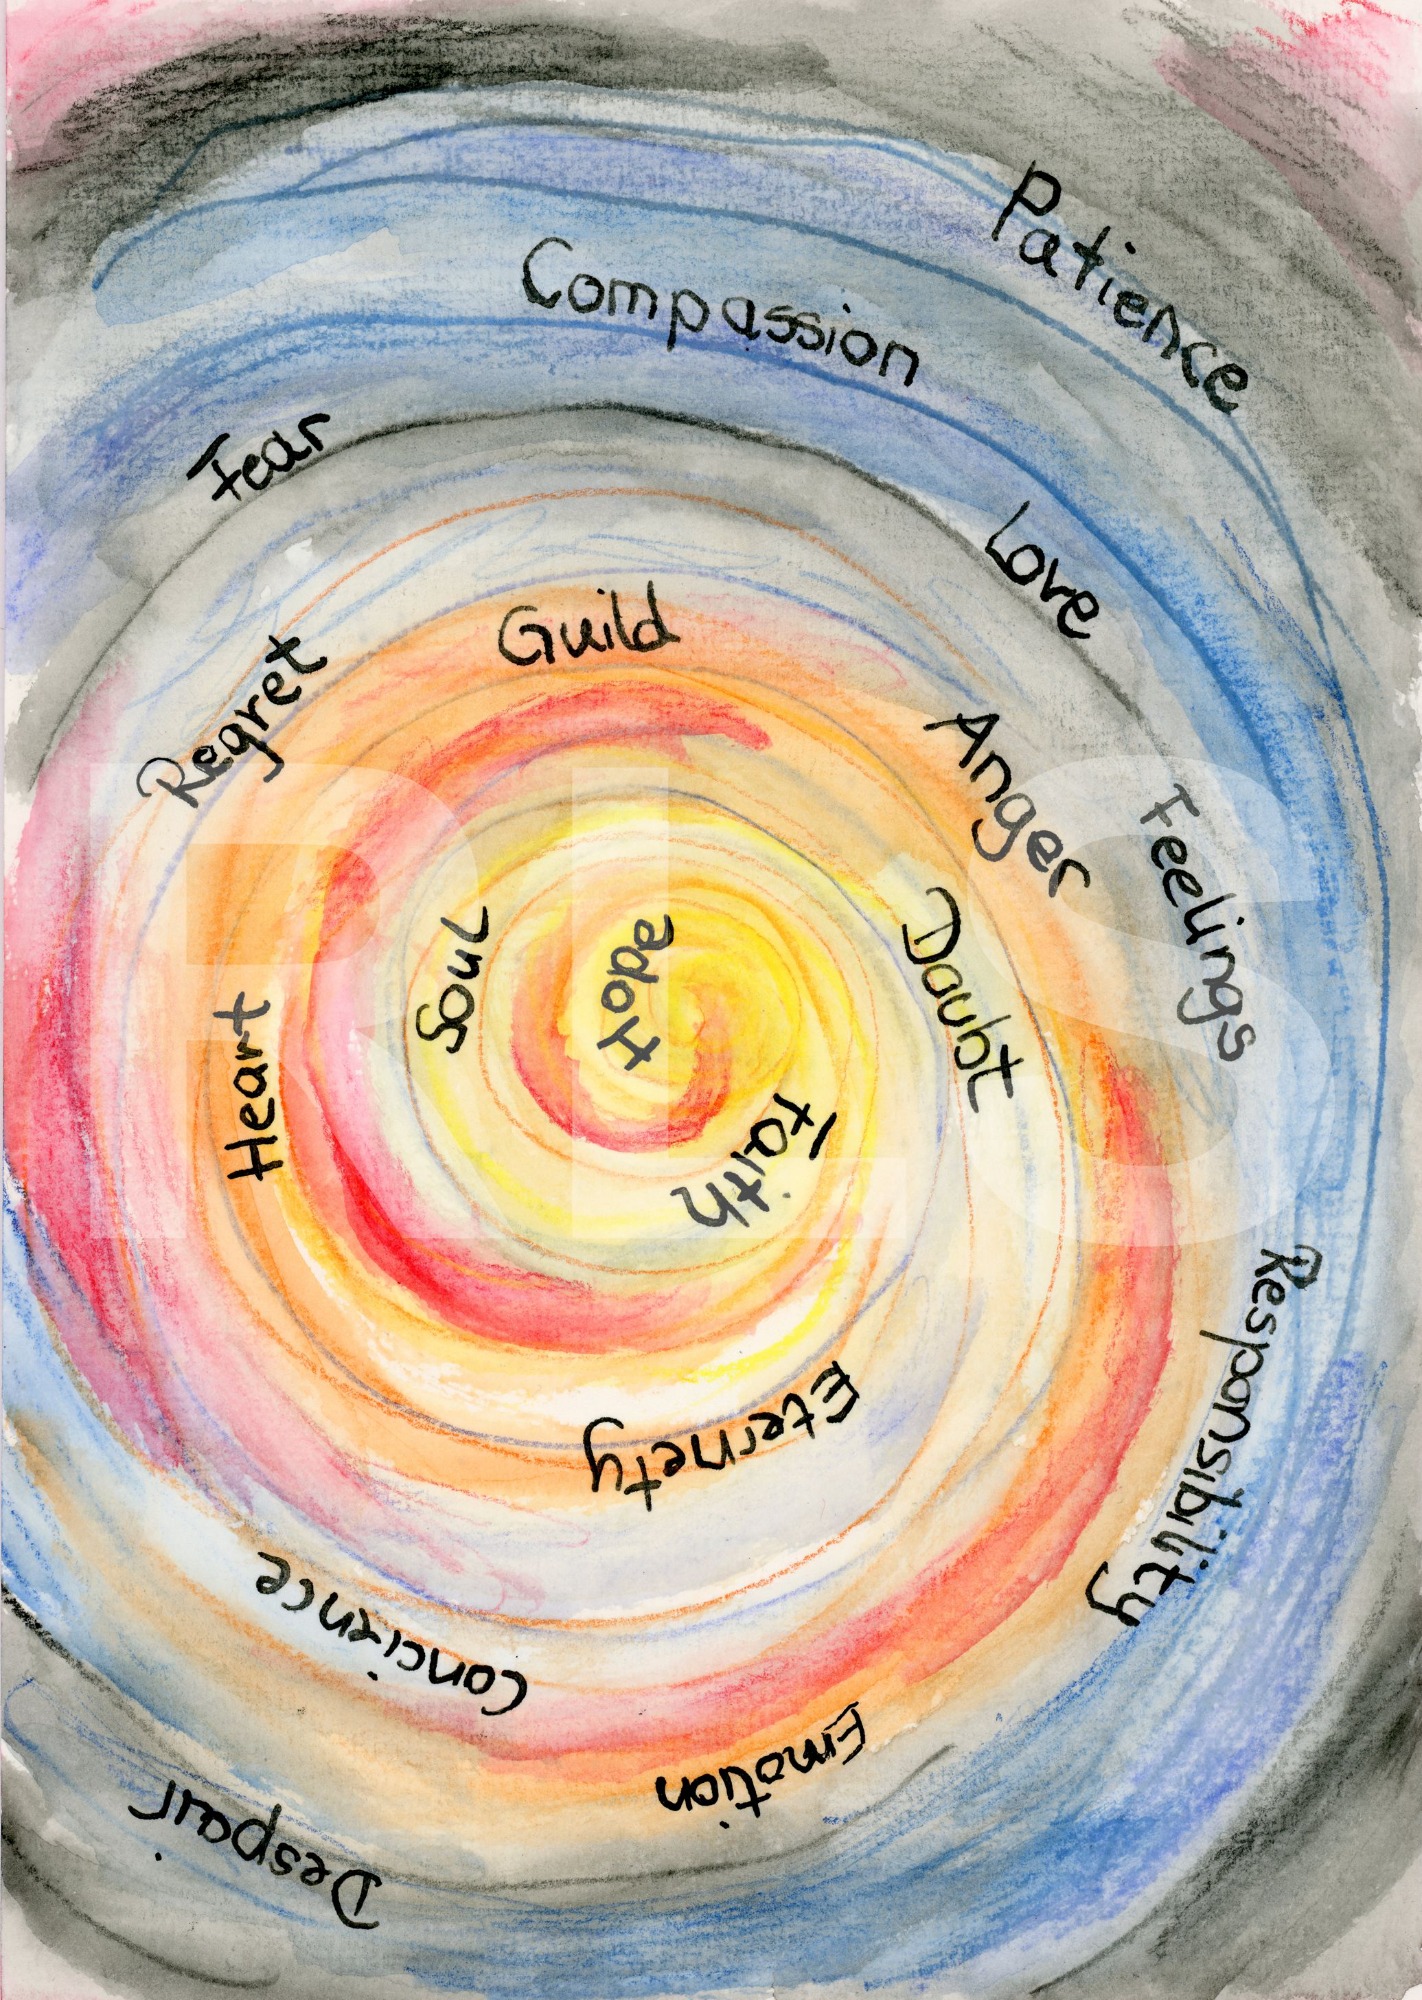 Patience
Compassion
Fear
Love
Guild
Regret
Anger
Feelings
Soul
Hope
Doubt
Heart
Faith
Responsibility
Eternety
Concience
Emotion
Despair
RLS